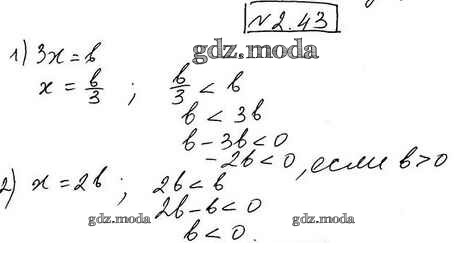 №2.43
1) 3x = b
gdz.moda
x = b/3 ; b/3 < b
b < 3b
b - 3b < 0
-2b < 0, если b > 0
2) x = 2b ; 2b < b
2b - b < 0
gdz.moda gdz.moda
b < 0.